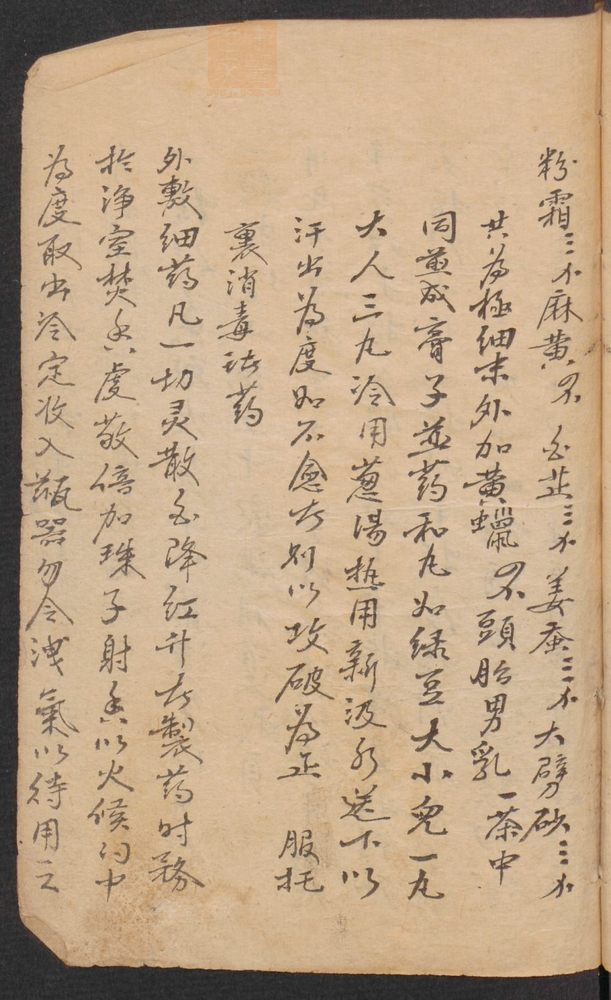 粉霜三个麻黄 白芷三个 姜蚕三个 大劈砂三个
共为極细末外加黄蠟 頭胎男乳一茶中
同煎成膏子並药和丸如绿豆大小兒一丸
大人三丸冷用葱湯热用新汲水送下以
汗出为度如不愈者则以攻破为止 服托
裏消毒诸药
外敷细药凡一切灵散白降红升者製药时務
於净室焚香虔敬倍加珠子射香以火候门中
为度取出冷定收入瓶器勿令洩氣以待用之